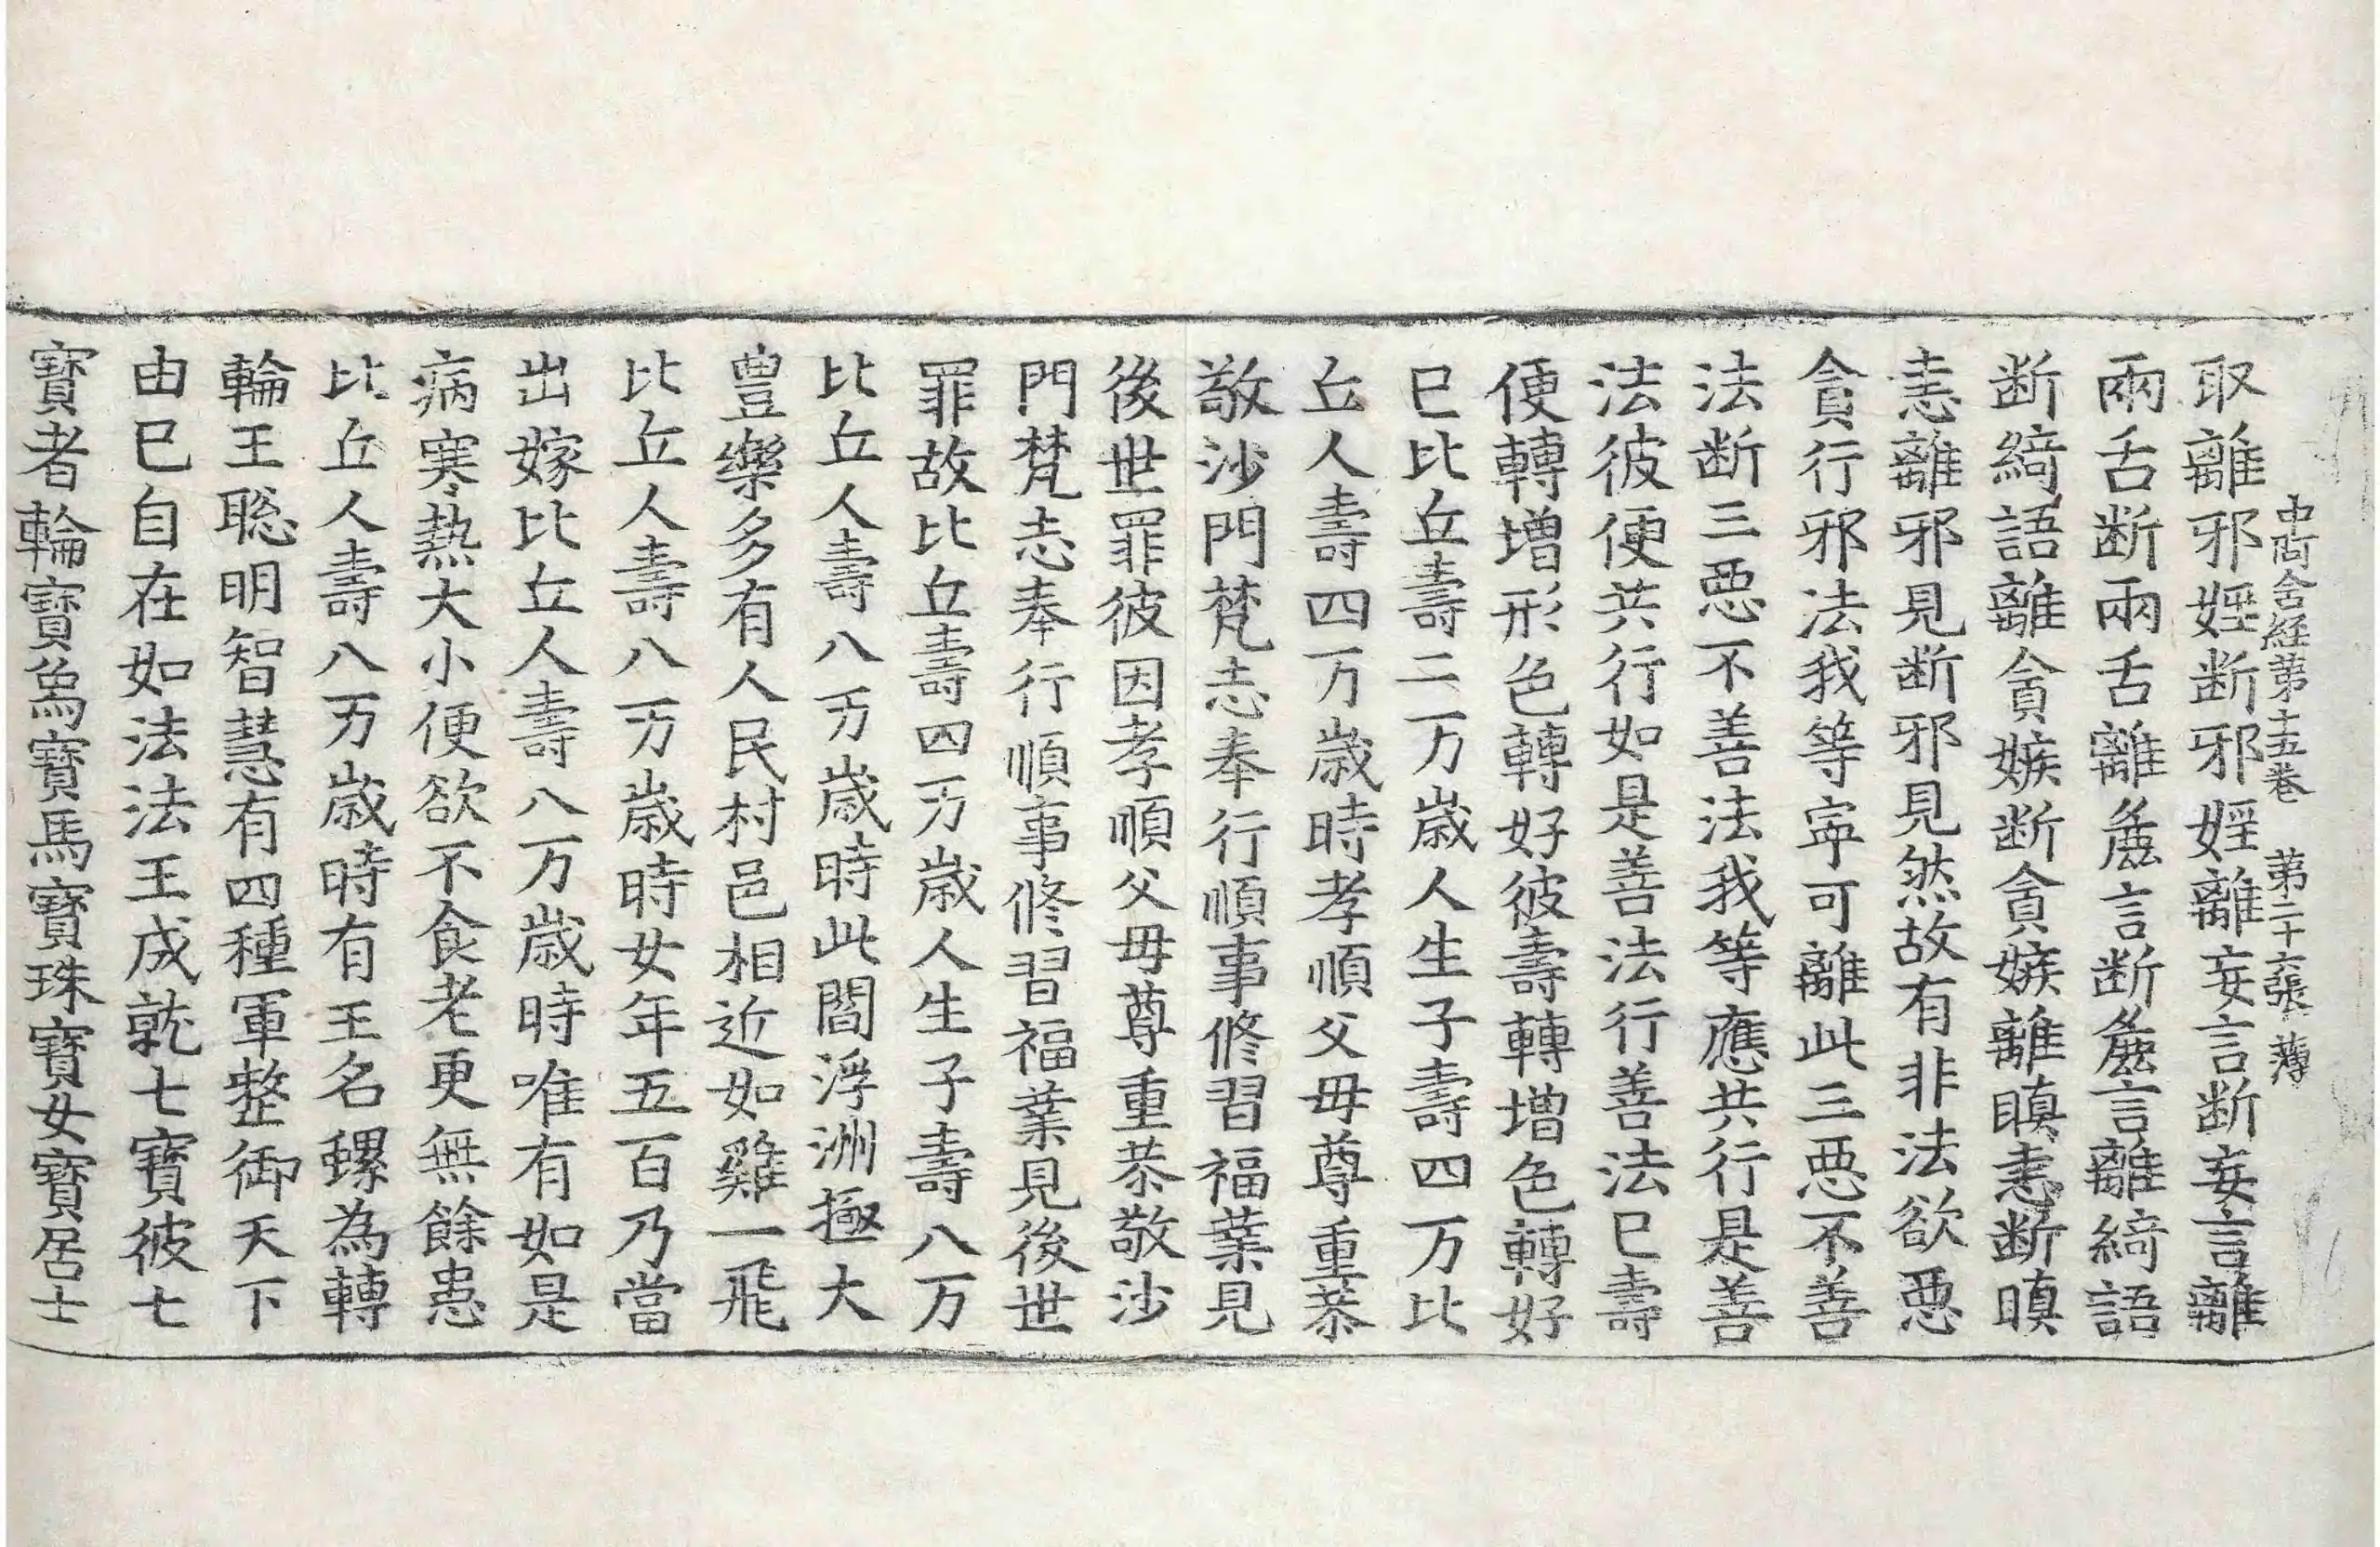 中阿含経第十五巻　第二十六張　薄
取離邪婬断邪婬離妄言断妄言離
兩舌断兩舌離麁言断麁言離綺語
断綺語離貪嫉断貪嫉離瞋恚断瞋
恚離邪見断邪見然故有非法欲惡
貪行邪法我等寧可離此三惡不善
法断三惡不善法我等應共行是善
法彼便共行如是善法行善法已壽
便轉增形色轉好彼壽轉增色轉好
已比丘壽二万歳人生子壽四万比
丘人壽四万歳時孝順父母尊重恭
敬沙門梵志奉行順事修習福業見
後世罪彼因孝順父母尊重恭敬沙
門梵志奉行順事修習福業見後世
罪故比丘壽四万歳人生子壽八万
比丘人壽八万歳時此閻浮洲極大
豊樂多有人民村邑相近如雞一飛
比丘人壽八万歳時女年五百乃當
出嫁比丘人壽八万歳時唯有如是
病寒熱大小便欲不食老更無餘患
比丘人壽八万歳時有王名螺為轉
輪王聡明智慧有四種軍整御天下
由已自在如法法王成就七寶彼七
寶者輪寶象寶馬寶珠寶女寶居士